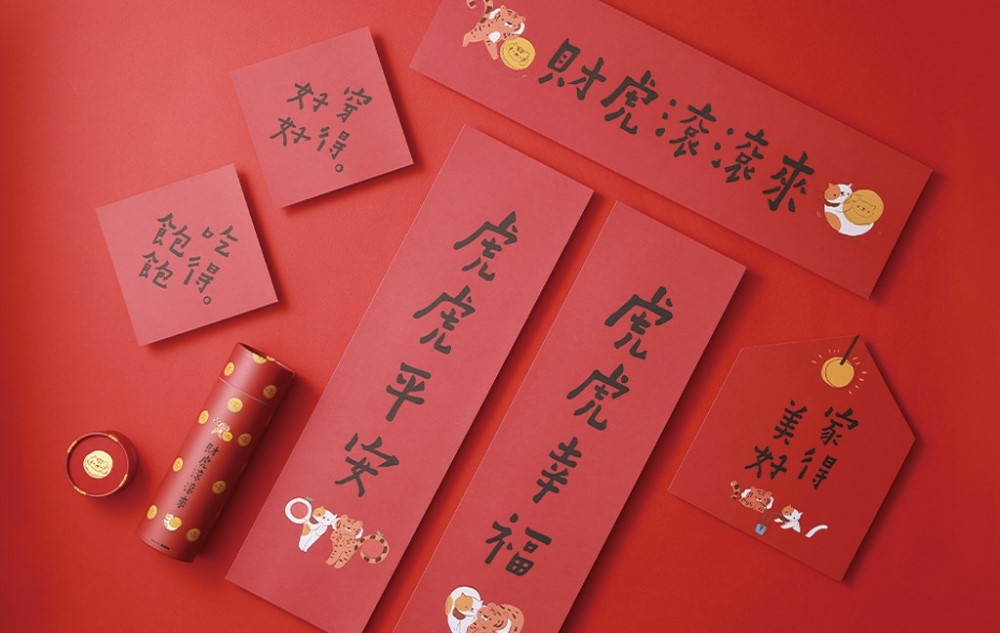 財虎滾滾來
穿得。
好好
吃得。
飽飽
虎虎平安
虎虎幸福
家得
美好
財虎滾滾來